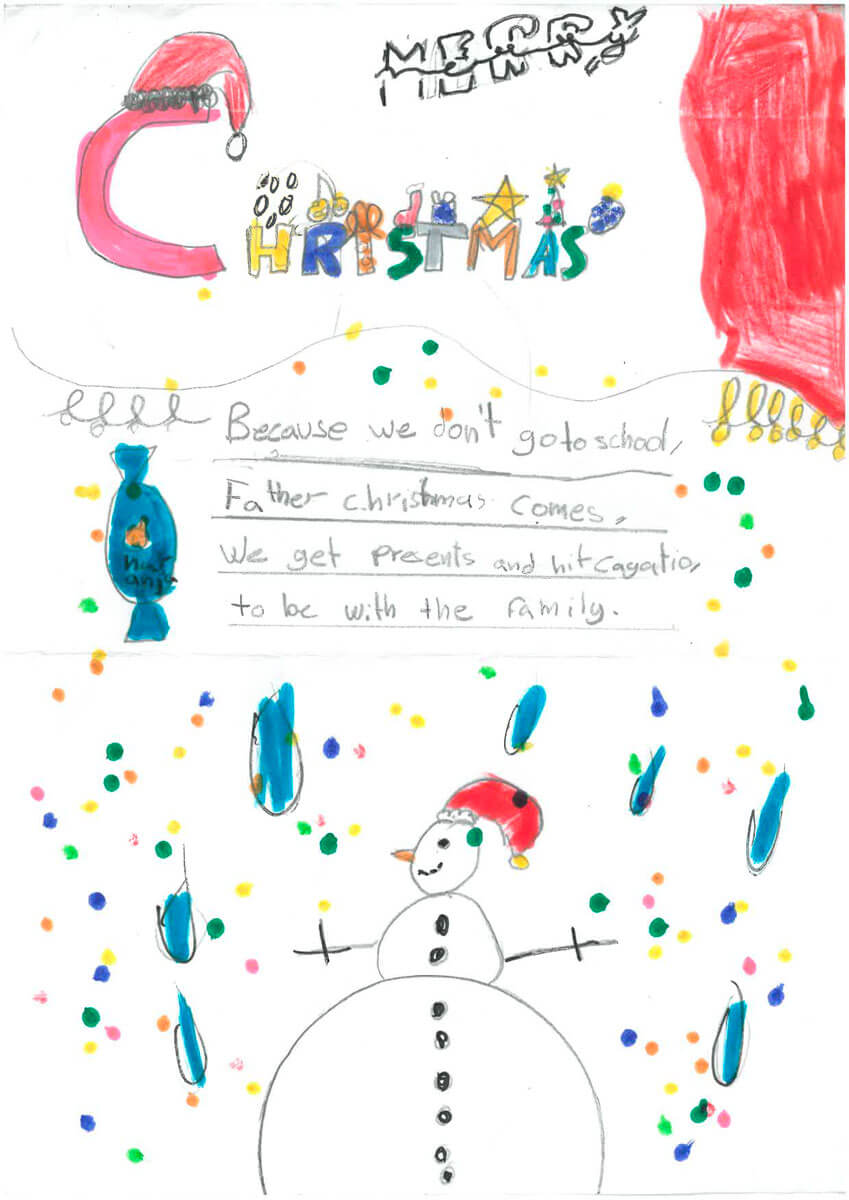 MERRY
CHRISTMAS
Because we don't go to school,
Father christmas comes,
We get presents and hit Cagatio,
to be with the family.
nar
anja